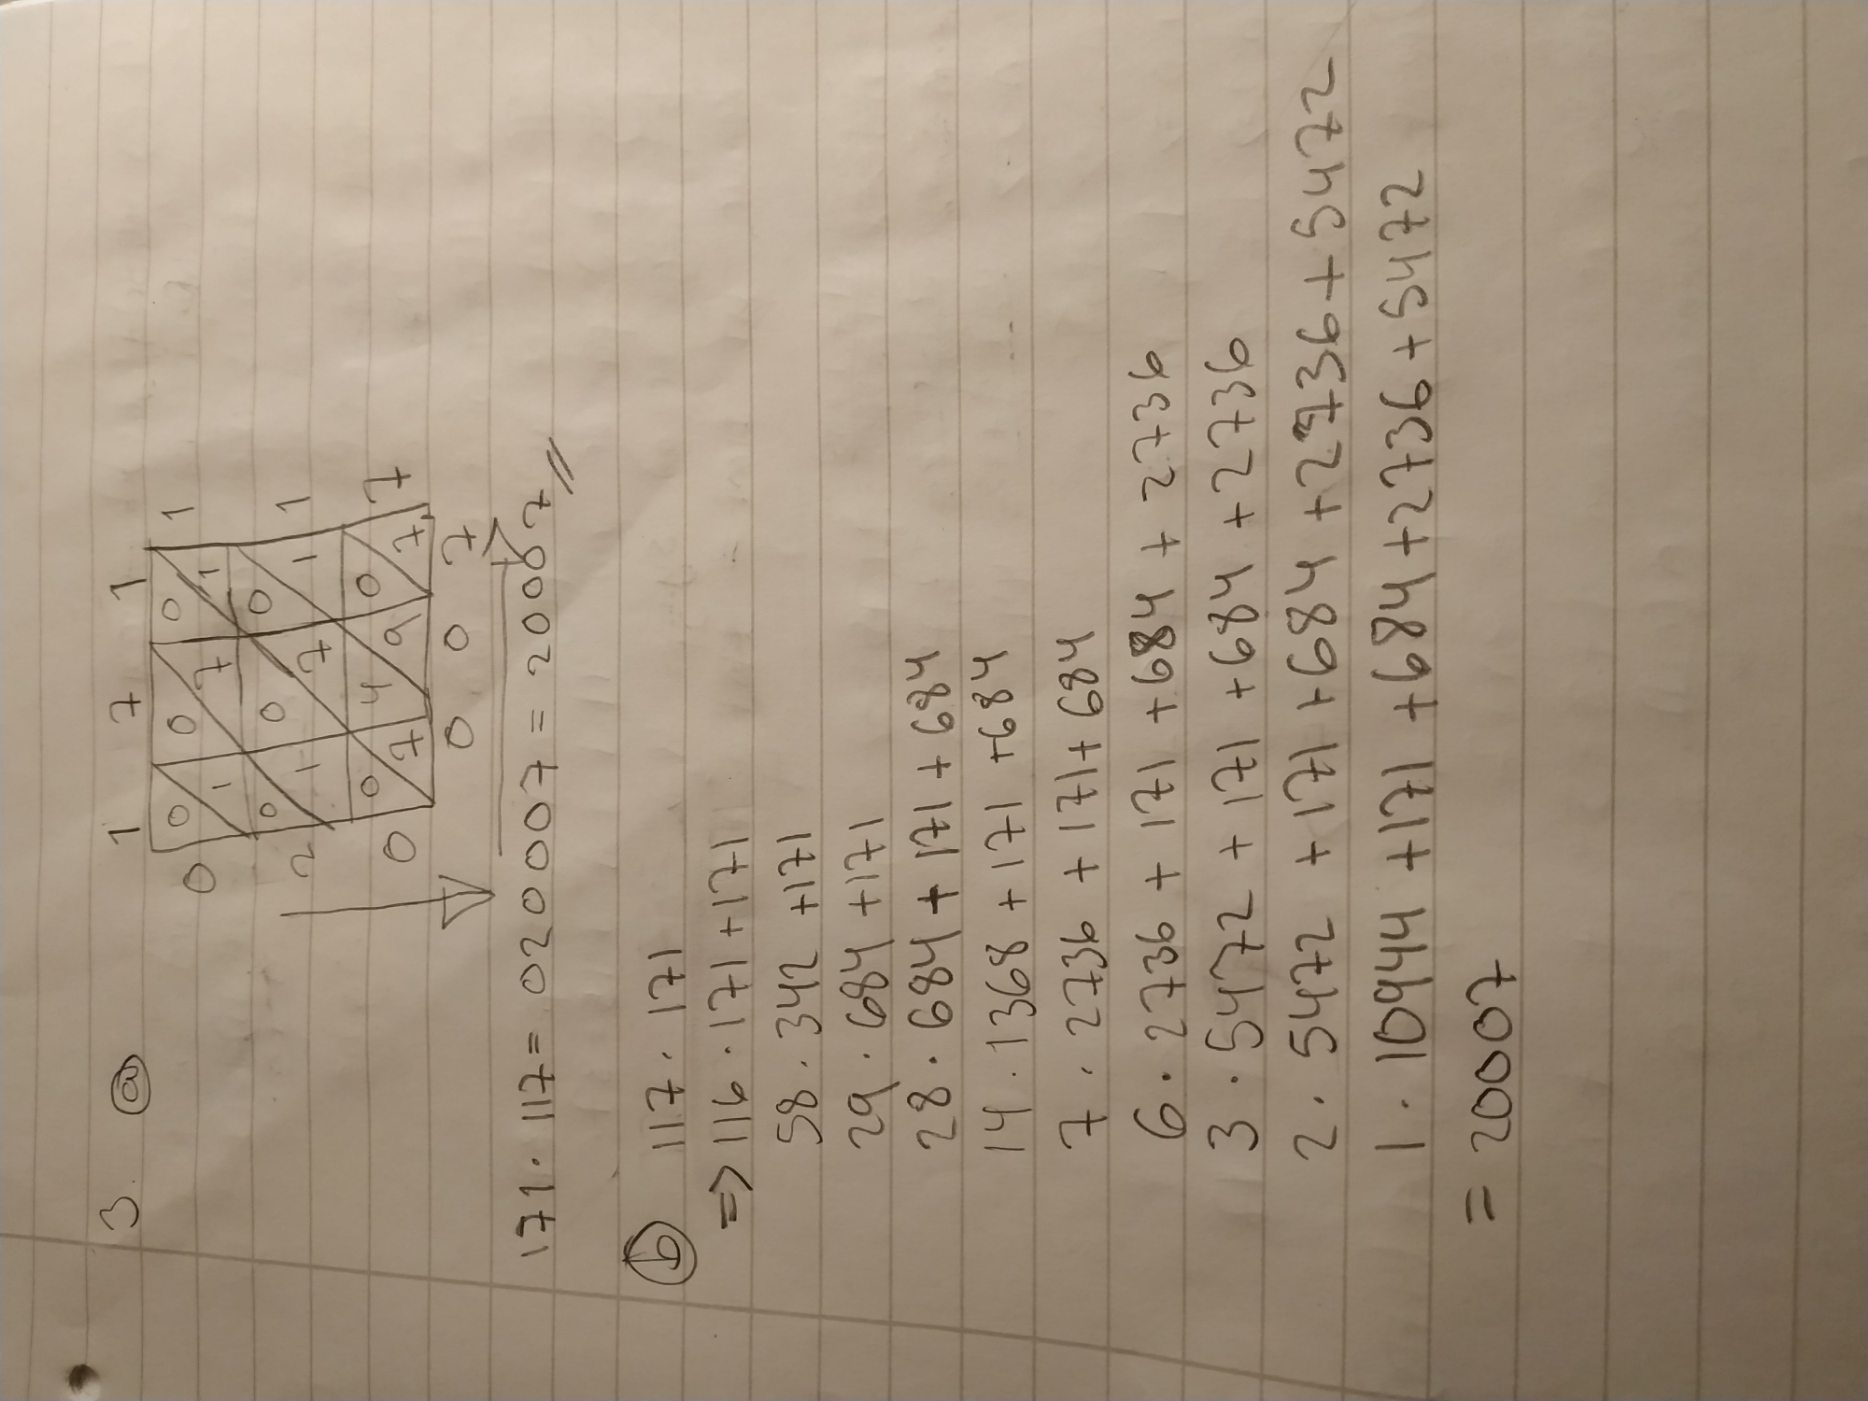 3. a 1 7 1
0 0 0 0 1
1 7 1
0 0 0
2 1 7 1 1
0 4 0
0 7 9 7 7
0 0 7
171 · 117 = 020007 = 20007
b 117 · 171
=> 116 · 171 + 171
58 · 342 + 171
29 · 684 + 171
28 · 684 + 171 + 684
14 · 1368 + 171 + 684
7 · 2736 + 171 + 684
6 · 2736 + 171 + 684 + 2736
3 · 5472 + 171 + 684 + 2736
2 · 5472 + 171 + 684 + 2736 + 5472
1 · 10944 + 171 + 684 + 2736 + 5472
= 20007